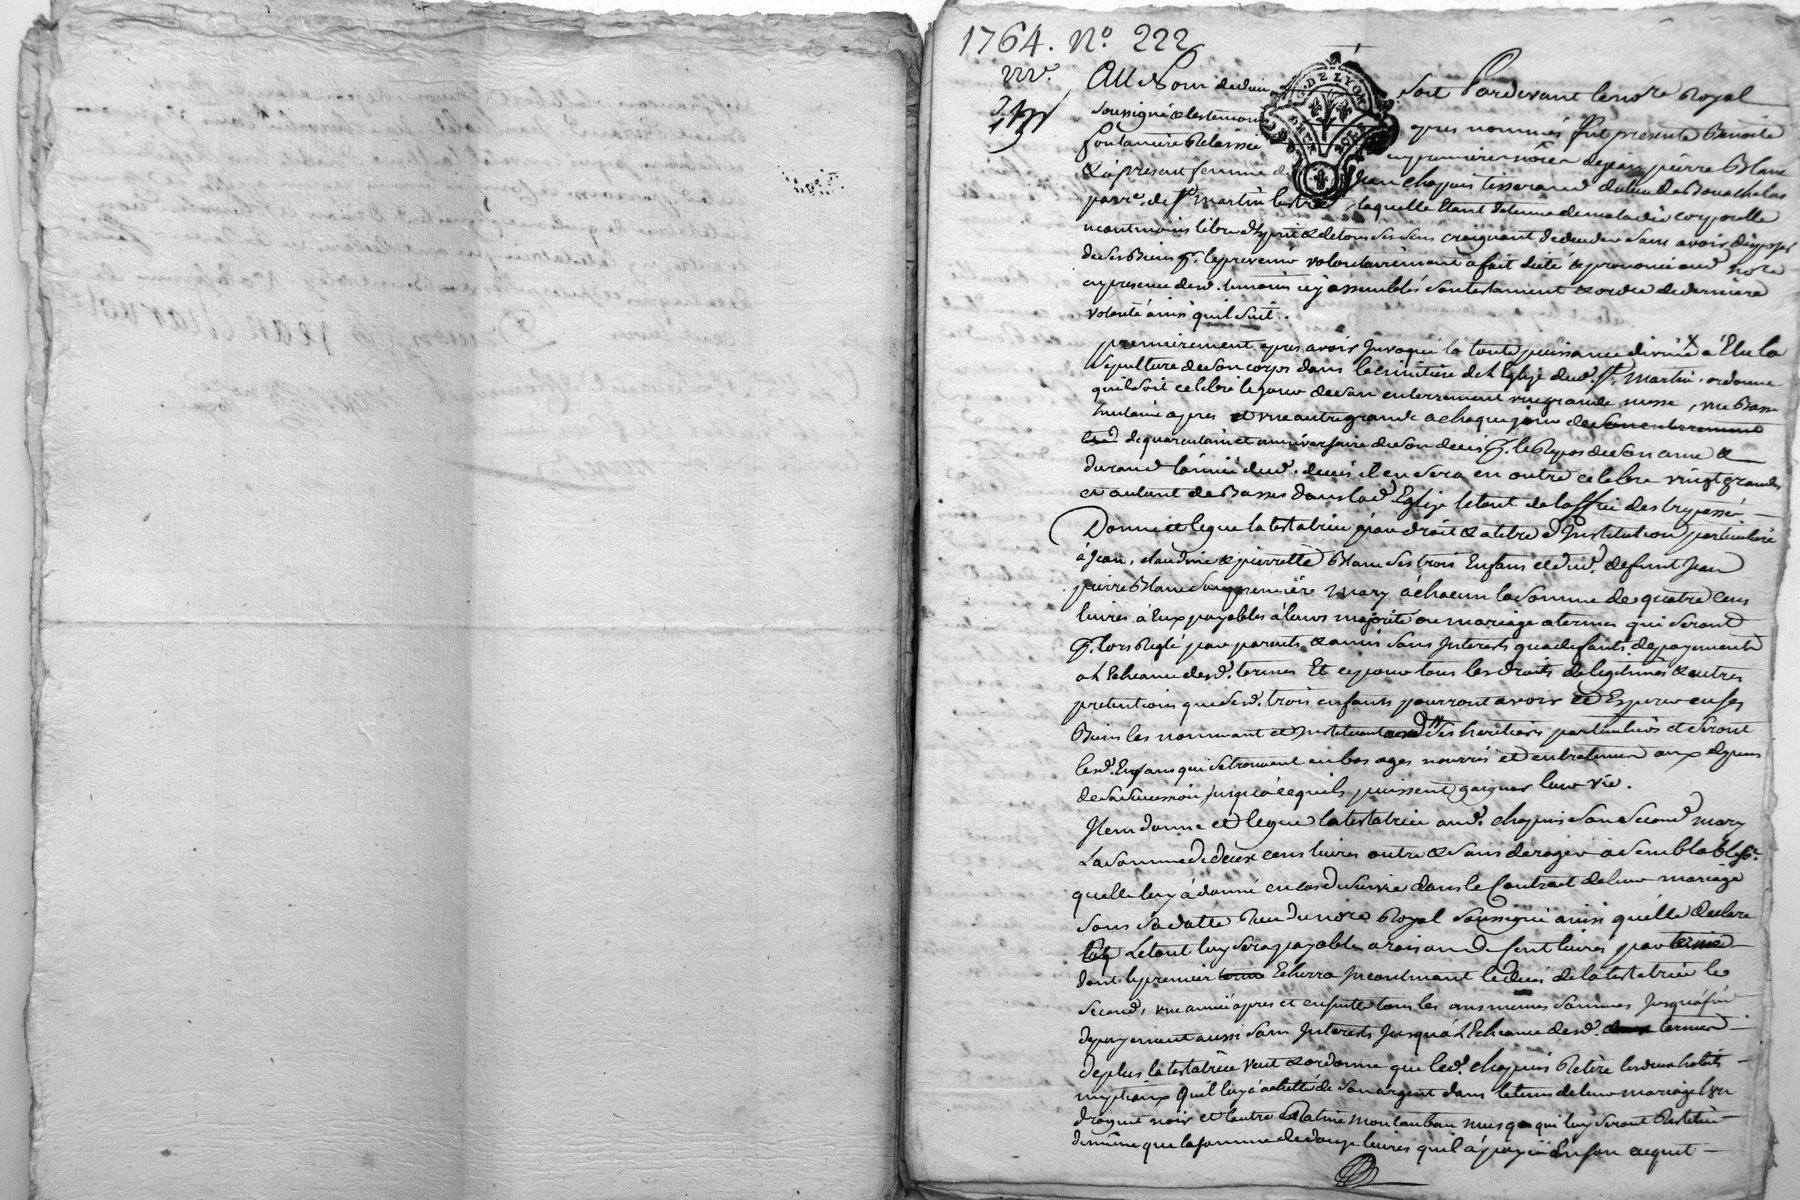 1764. No 222
Au Nom de dieu soit Pardevant le nore Royal
soussigné & les temoins apres nommés fut presente Benoite
fontaniere Relaissée en premieres nôces de jean pierre Blanc
& à present femme de Jean chapuis tisserand du lieu de
parr.e de St martin lestra, laquelle Etant detenue de maladie corporelle
neantmoins libre d'esprit & de tous ses sens craignant de deceder sans avoir disposé
de ses Biens pr. le prevenir volontairement a fait dicté & prononcé aud nore
en presence desd. temoins icy assemblés son testament & ordre de derniere
volonté ainsi quil suit.
premierement apres avoir Invoqué la toute puissance divine a Elu la
sepulture de son corps dans le cimitiere de L'Eglise dud. St. martin. ordonne
quil soit celebré le jour de son enterrement une grande messe, une Basse
lendemain apres et une autre grande a chaque jour de son enterrement
de quarantain et anniversaire de son deces pr. le Repos de son ame &
durand lannée dud. deces il en sera en outre celebré vingt grandes
et autant de Basses dans lad Eglise le tout de l'office des trepassés
Donne et legue la testatrice par droit & a titre d'Institution particuliere
à Jean, claudine & pierrette Blanc ses trois Enfans et dud. defunt Jean
pierre Blanc son premiere mary à chacun la somme de quatre cens
livres à Eux payables à leurs majorité ou mariage a termes qui seront
pr. lors Reglé par parents & amis sans Interests qua defauts de payements
a L'Echeance desd. termes Et ce pour tous les droits de legitimes & autres
pretentions que sesd. trois enfants pourront avoir et Esperer en ses
Biens les nommant et Instituant ses heritiers particuliers et seront
lesd. Enfans qui se trouvent en bas ages nourris et entretenus aux depens
de sa succession jusqu'à ce quils puissent gaigner leur vie.
Item donne et legue la testatrice aud. chapuis son second mary
La somme de deux cens livres outre & sans deroger a semblable
quelle luy à donné en cas de survie dans le Contract de leur mariage
sous sa datte Receu du nore Royal soussigné ainsi quelle declare
Le tout luy sera payable a raison de Cent livres par terme
dont le premier terme Echerra Incontinant le deces de la testatrice le
second, une année apres et ensuitte tous les ans meme sommes Jusquà fin
de payement aussi sans Interests Jusqu'à L'Echeance desd. termes
de plus la testatrice veut & ordonne que led. chapuis Retire les deux habits
nuptiaux Quil luy à achetté de son argent dans le tems de leur mariage l'un
droguet noir et l'autre Ratine montauban musq qui luy seront Restitué
de même que la somme de douze livres quil à payé En son acquit